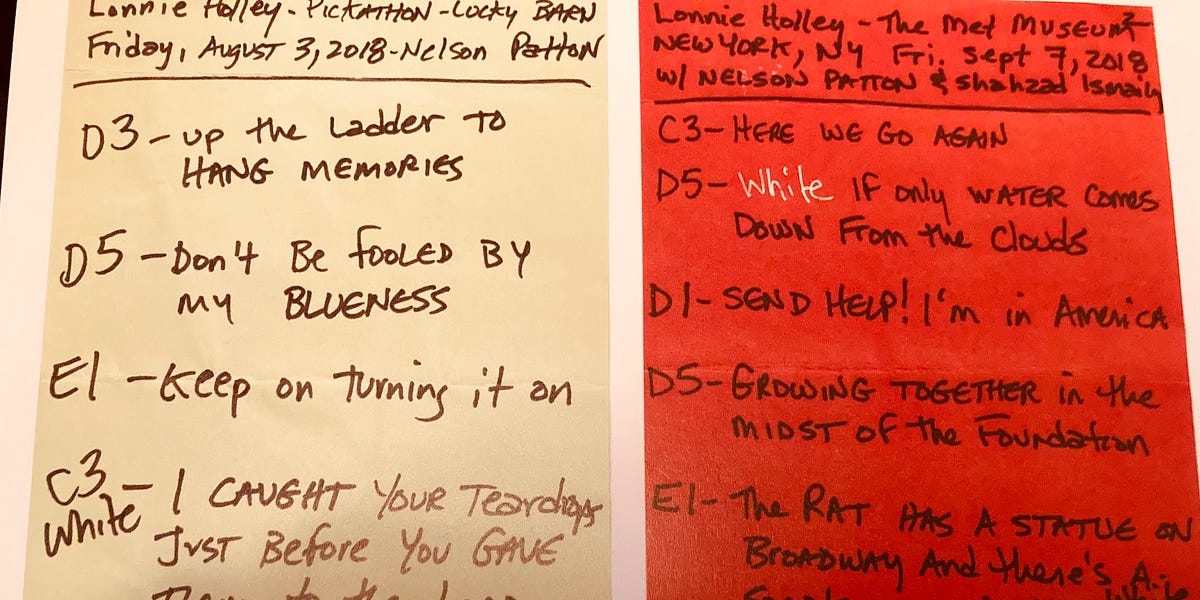 Lonnie Holley - PICKATHON - Lucky BARN
Friday, August 3, 2018 - Nelson Patton
D3 - up the Ladder TO
HANG MEMORIES
D5 - Don't Be fooled BY
my BLUENESS
E1 - Keep on turning it on
C3 - I CAUGHT Your Teardrops
White
Just Before You GAVE
Them to the
Lonnie Holley - The Met Museum
NEW YORK, NY Fri. Sept 7, 2018
w/ NELSON PATTON & Shahzad Ismaily
C3 - HERE WE GO AGAIN
D5 - White IF only WATER Comes
DOWN From the Clouds
D1 - SEND HELP! I'm in America
D5 - GROWING TOGETHER in the
MIDST OF the Foundation
E1 - The RAT HAS A STATUE ON
BROADWAY And there's A